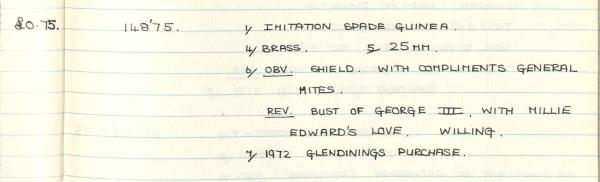 £0.75. 148'75. 1/ IMITATION SPADE GUINEA.
4/ BRASS. 5/ 25 MM.
6/ OBV. SHIELD. WITH COMPLIMENTS GENERAL
MITES.
REV. BUST OF GEORGE III, WITH MILLIE
EDWARD'S LOVE. WILLING.
7/ 1972 GLENDININGS PURCHASE.